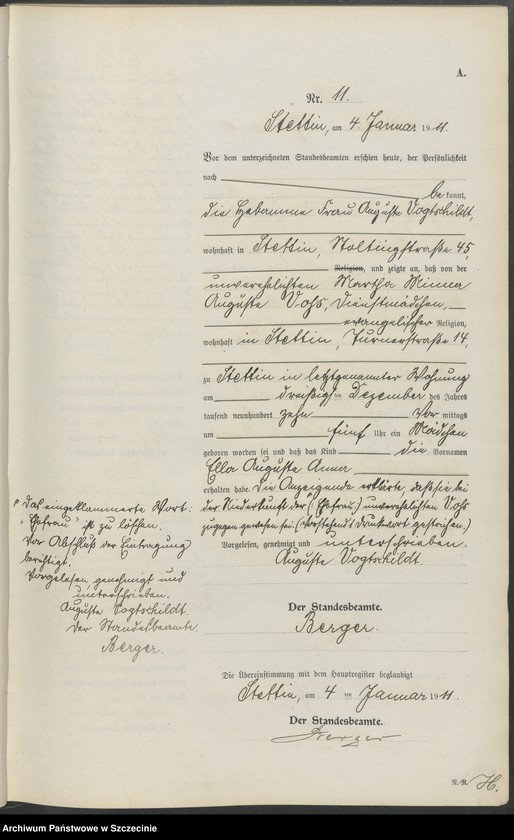 A.
Nr. 11.
Stettin, am 4. Januar 1911.
Vor dem unterzeichneten Standesbeamten erschien heute, der Persönlichkeit
nach
bekannt,
die Hebamme Frau Auguste Vogtschildt,
wohnhaft in Stettin, Stoltingstraße 45,
Religion, und zeigte an, daß von der
unverehelichten Martha Minna
Auguste Voß, Dienstmädchen,
evangelischer Religion,
wohnhaft in Stettin, Turnerstraße 14,
zu Stettin in letztgenannter Wohnung
am dreißigsten Dezember des Jahres
tausend neunhundert zehn Vormittags
um fünf Uhr ein Mädchen
geboren worden sei und daß das Kind die Vornamen
Ella Auguste Anna
erhalten habe. Die Anzeigende erklärte, daß sie bei
der Niederkunft der (:Ehefrau:) unverehelichten Voß
zugegen gewesen sei. (Vorstehend 1 Druckwort gestrichen.)
Vorgelesen, genehmigt und unterschrieben.
Auguste Vogtschildt.
Der Standesbeamte.
Berger.
Das eingeklammerte Wort:
"Ehefrau" ist zu löschen.
Vor Abschluß der Eintragung
berichtigt.
Vorgelesen, genehmigt und
unterschrieben.
Auguste Vogtschildt
Der Standesbeamte.
Berger.
Die Übereinstimmung mit dem Hauptregister beglaubigt
Stettin, am 4ten Januar 1911.
Der Standesbeamte.
Berger
N.-R. H.
Archiwum Państwowe w Szczecinie